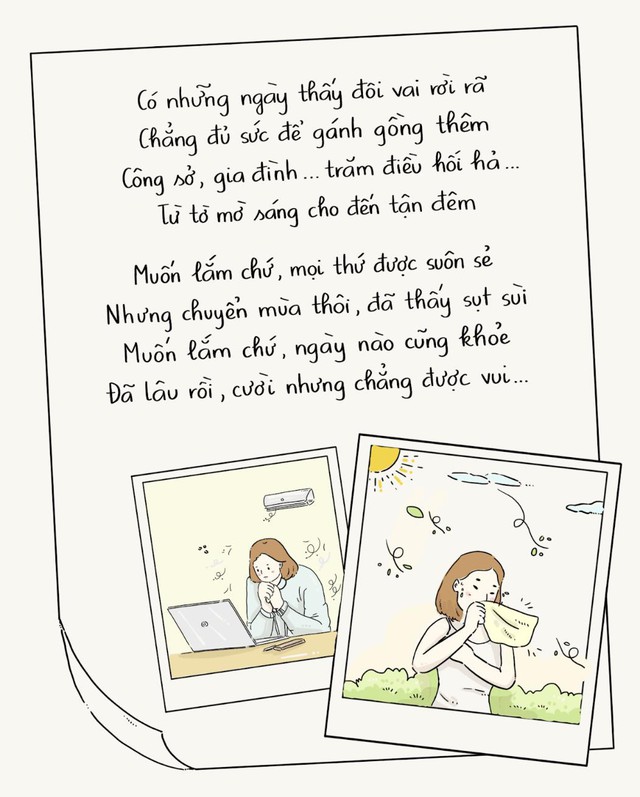 Có những ngày thấy đôi vai rời rã
Chẳng đủ sức để gánh gồng thêm
Công sở, gia đình... trăm điều hối hả...
Từ tờ mờ sáng cho đến tận đêm
Muốn lắm chứ, mọi thứ được suôn sẻ
Nhưng chuyển mùa thôi, đã thấy sụt sùi
Muốn lắm chứ, ngày nào cũng khỏe
Đã lâu rồi, cười nhưng chẳng được vui...